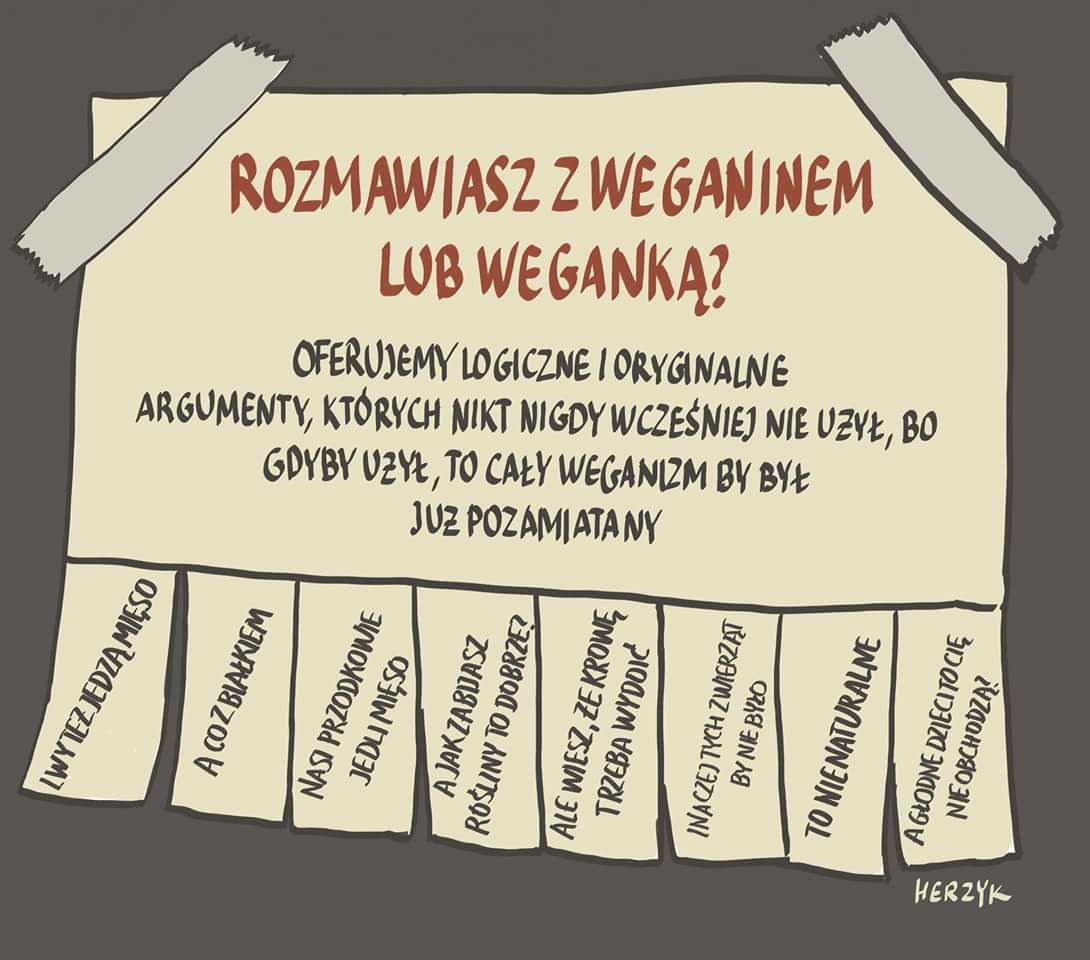 ROZMAWIASZ Z WEGANINEM
LUB WEGANKĄ?
OFERUJEMY LOGICZNE I ORYGINALNE
ARGUMENTY, KTÓRYCH NIKT NIGDY WCZEŚNIEJ NIE UŻYŁ, BO
GDYBY UŻYŁ, TO CAŁY WEGANIZM BY BYŁ
JUŻ POZAMIATANY
LWY TEŻ JEDZĄ MIĘSO
A CO Z BIAŁKIEM
NASI PRZODKOWIE
JEDLI MIĘSO
A JAK ZABIJASZ
ROŚLINY TO DOBRZE?
ALE WIESZ, ŻE KROWĘ
TRZEBA WYDOIĆ
INACZEJ TYCH ZWIERZĄT
BY NIE BYŁO
TO NIENATURALNE
A GŁODNE DZIECI TO CIĘ
NIE OBCHODZĄ?
HERZYK